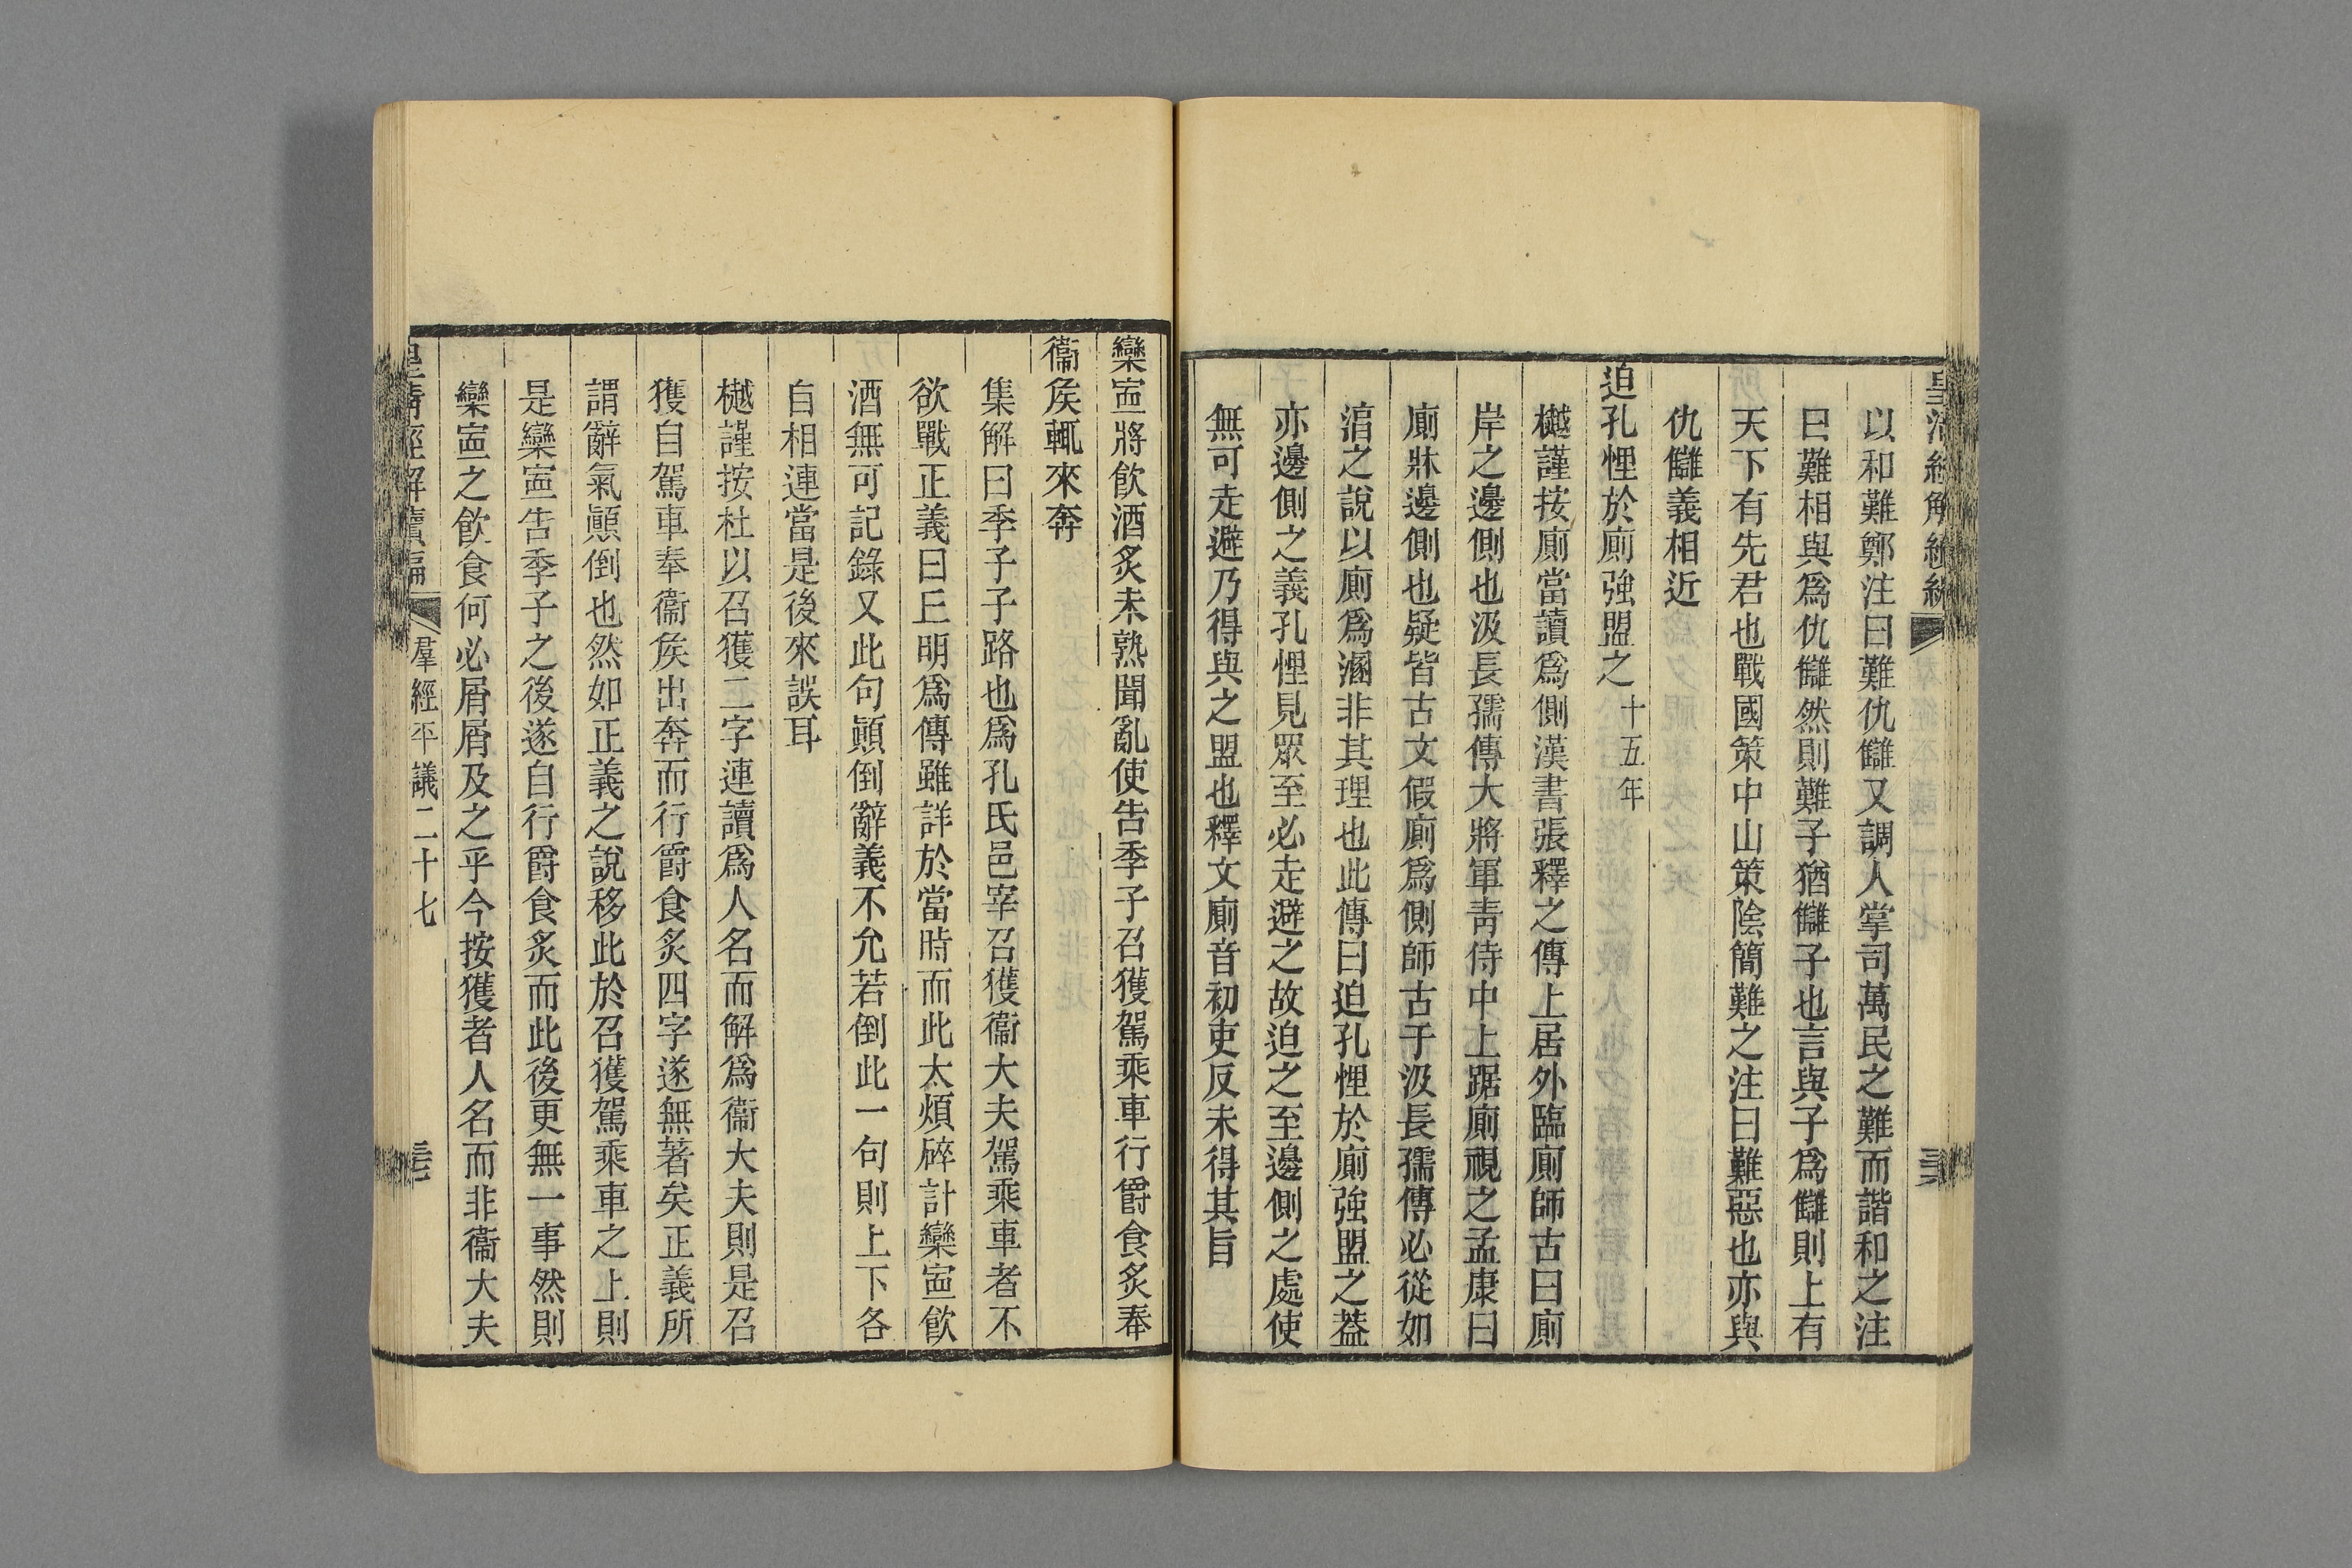 皇清經解續編
以和難鄭注曰難仇讎又調人掌司萬民之難而諧和之注
曰難相與爲仇讎然則難子猶讎子也言與子爲讎則上有
天下有先君也戰國策中山策陰簡難之注曰難惡也亦與
仇讎義相近
迫孔悝於廁強盟之十五年
樾謹按廁當讀爲側漢書張釋之傳上居外臨廁師古曰廁
岸之邊側也汲長孺傳大將軍靑侍中上踞廁視之孟康曰
廁牀邊側也疑皆古文假廁爲側師古于汲長孺傳必從如
淯之說以廁爲溷非其理也此傳曰迫孔悝於廁強盟之葢
亦邊側之義孔悝見眾至必走避之故迫之至邊側之處使
無可走避乃得與之盟也釋文廁音初吏反未得其旨
欒寍將飮酒炙未熟聞亂使告季子召獲駕乘車行爵食炙奉
衞矦輒來奔
集解曰季子子路也爲孔氏邑宰召獲衞大夫駕乘車者不
欲戰正義曰丘明爲傳雖詳於當時而此太煩碎計欒寍飮
酒無可記錄又此句顚倒辭義不允若倒此一句則上下各
自相連當是後來誤耳
樾謹按杜以召獲二字連讀爲人名而解爲衞大夫則是召
獲自駕車奉衞矦出奔而行爵食炙四字遂無著矣正義所
謂辭氣顚倒也然如正義之說移此於召獲駕乘車之上則
是欒寍吿季子之後遂自行爵食炙而此後更無一事然則
欒寍之飮食何必屑屑及之乎今按獲者人名而非衞大夫
皇清經解續編 羣經平議二十七